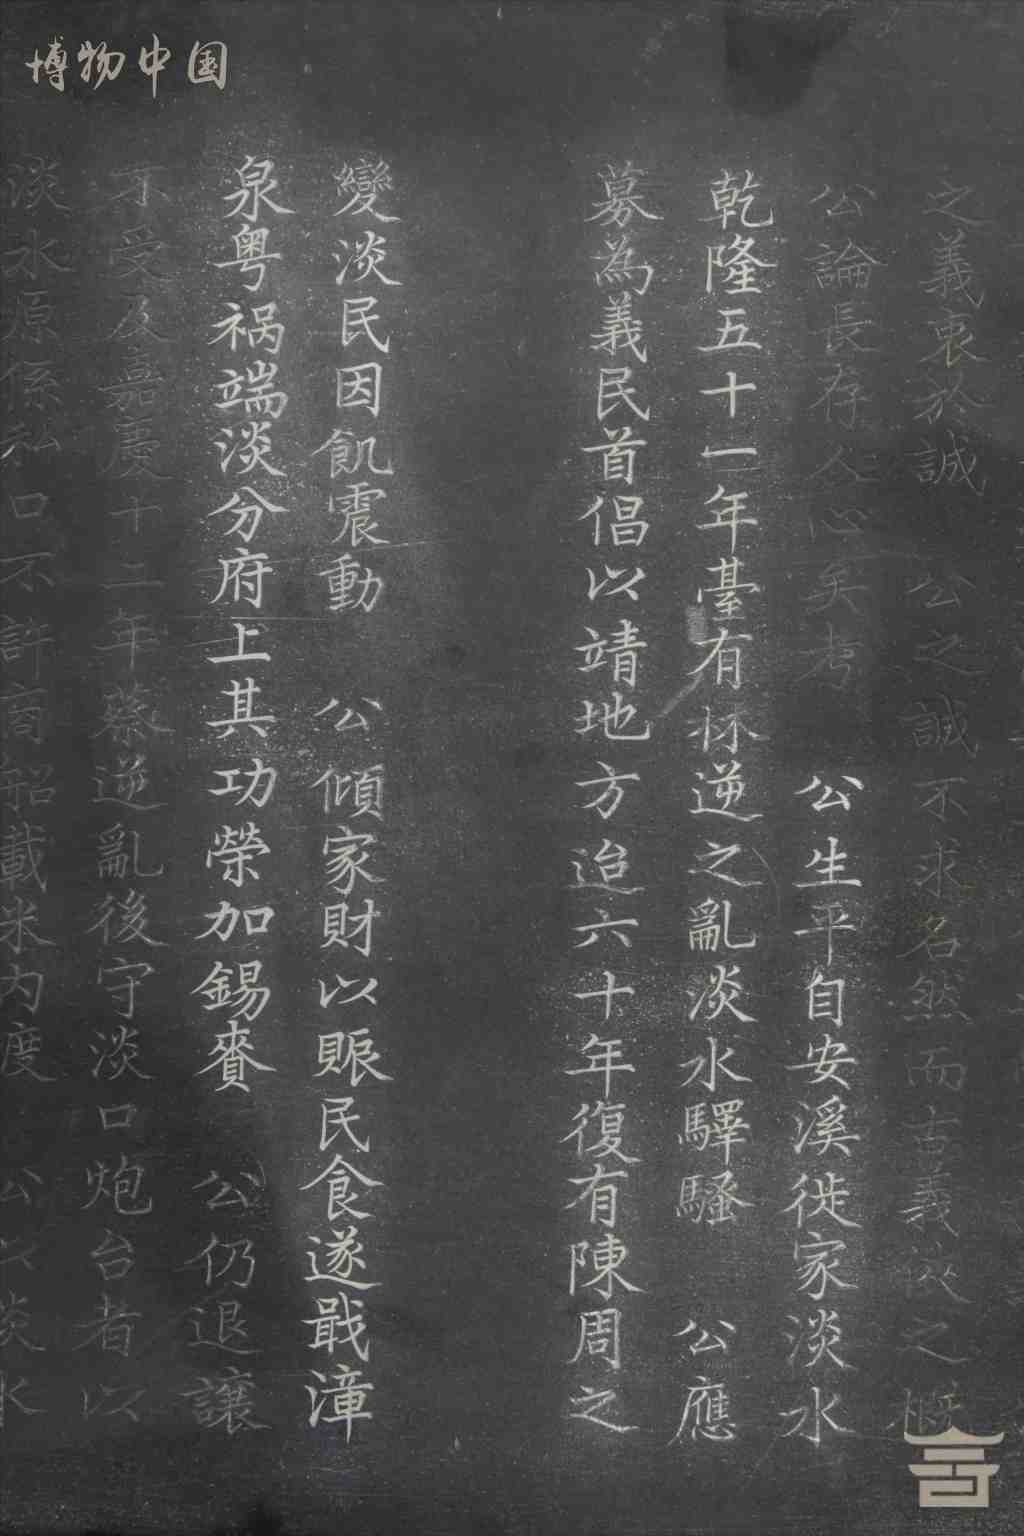 博物中国
之義衷於誠 公之誠不求名然而古義從之慨
公論長存人心矣考 公生平自安溪徙家淡水
乾隆五十一年臺有林逆之亂淡水驛騷 公應
募為義民首倡以靖地方迨六十年復有陳周之
變淡民因飢震動 公傾家財以賑民食遂戢漳
泉粤祸端淡分府上其功榮加錫賚 公仍退讓
不受及嘉慶十二年蔡逆亂後守淡口炮台者以
淡水原係私口不許商船載米內度 公以淡水